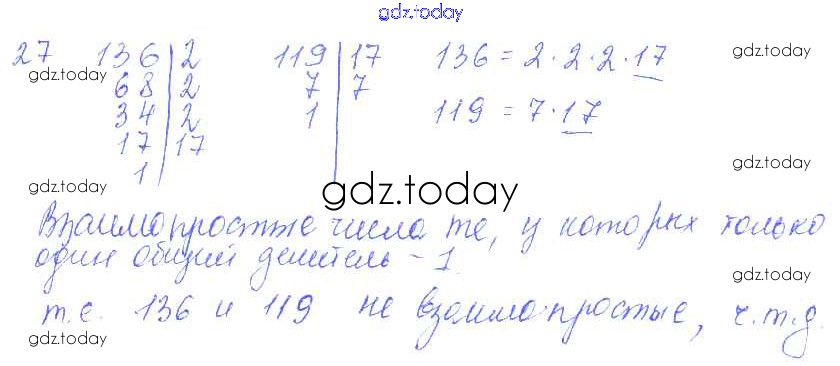 gdz.today
27 136 | 2 119 | 17 136 = 2 · 2 · 2 · 17 gdz.today
gdz.today 68 | 2 7 | 7
34 | 2 1 | 119 = 7 · 17
17 | 17
1 | gdz.today
gdz.today gdz.today
Взаимопростые числа те, у которых только
один общий делитель - 1.
gdz.today
т.е. 136 и 119 не взаимопростые, ч.т.д.
gdz.today gdz.today